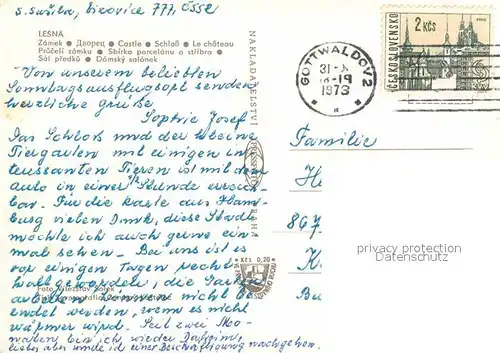 J. Sušila, Lisovice 777, ČSSR
LESNA
Zámek ● Дворец ● Castle ● Schloß ● Le château
Průčelí zámku ● Sbírka porcelánu a stříbra ●
Sál předků ● Dámský salónek
NAKLADATELSTVÍ
PRAHA
"Von unserem beliebten
Sonntagsausflugsort senden
herzliche Grüße
Sophie Josef
Das Schloß und der kleine
Tiergarten mit einigen in-
teressanten Tieren ist mit dem
Auto in einer 1/2 Stunde erreich-
bar. Für die Karte aus Ham-
burg vielen Dank, diese Stadt
möchte ich auch gerne ein-
mal sehen. Bei uns ist es
vor einigen Tagen recht
kalt geworden, die
Arbeiten können nicht be-
endet werden, wenn es nicht
wärmer wird. Seit zwei Mo-
naten bin ich wieder daheim,
und ich einer Beschäftigung nachgehen.
Kčs 0,20
GOTTWALDOV 2
1973
ČESKOSLOVENSKO
2 Kčs
Familie
H
867
K
Bu
privacy protection
Datenschutz